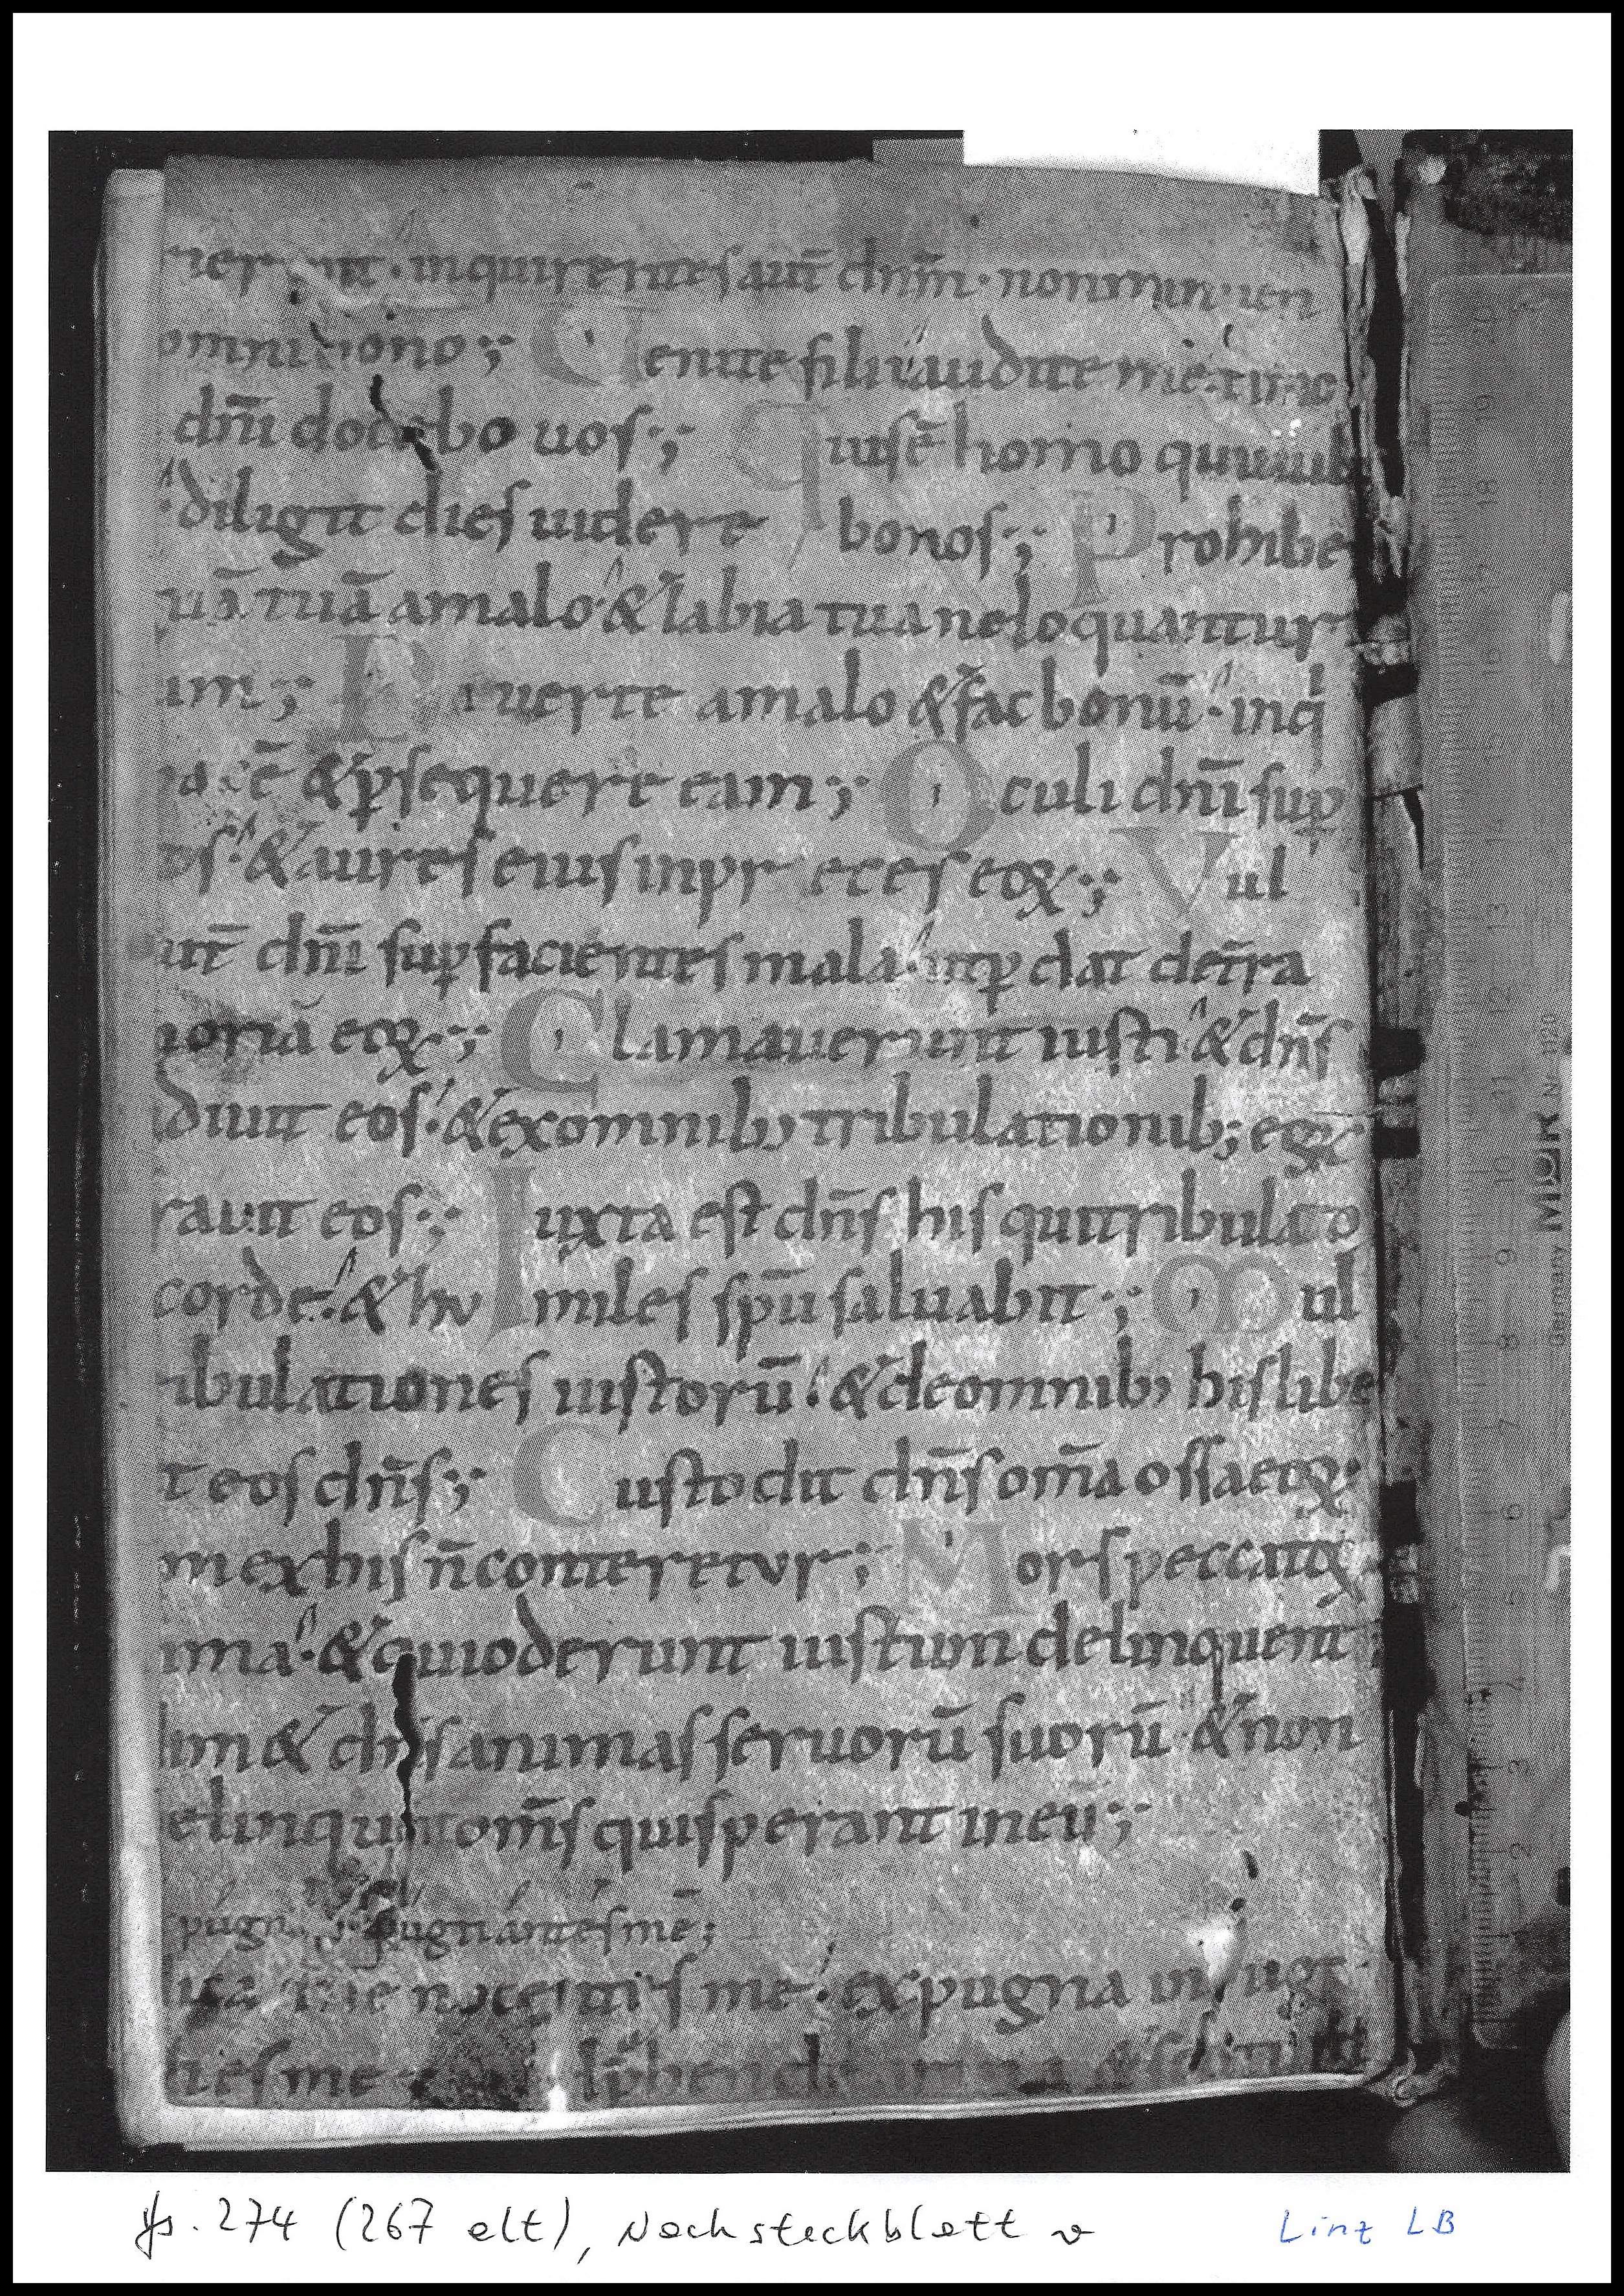 rierunt · inquirentes aut̄ dnm̄ · non minuen
omni bono ;; Uenite filii audite me · timo
dn̄i docebo uos ;; Quis ē homo qui uult
diligit dies uidere bonos ;; Prohibe
uā tuā a malo · & labia tua ne loquantur
um ;; Diuerte a malo & fac bonū · inq
pacē & p̱sequere eam ;; Oculi dn̄i sup̱
os · & aures eius in preces eoꝝ ;; Vul
ut̄ dn̄i sup̱ facientes mala · ut p̱dat det̄ra
moriā eoꝝ ;; Clamauerunt iusti & dn̄s
udiuit eos · & ex omnib; tribulationib; eoꝝ
rauit eos ;; Iuxta est dn̄s his qui tribulato
corde · & humiles spū saluabit ;; Mul
ibulationes iustorū · & de omnib; his libe
t eos dn̄s ;; Custodit dn̄s om̄a ossa eoꝝ ·
m ex his n̄ conteretur ;; Mors peccatoꝝ
ima · & qui oderunt iustum delinquent
im & dn̄s animas seruorū suorū & non
elinquent om̄s qui sperant in eū ;;
pugn pugnántes mē ;
ica me nocentes me · expugna inpug
tes me prehende arma & scutum
Hs. 274 (267 alt), Nachsteckblatt v
Linz LB
Germany
MDK Nr. 1120
19
18
17
16
15
14
13
12
11
10
9
8
7
6
3
2